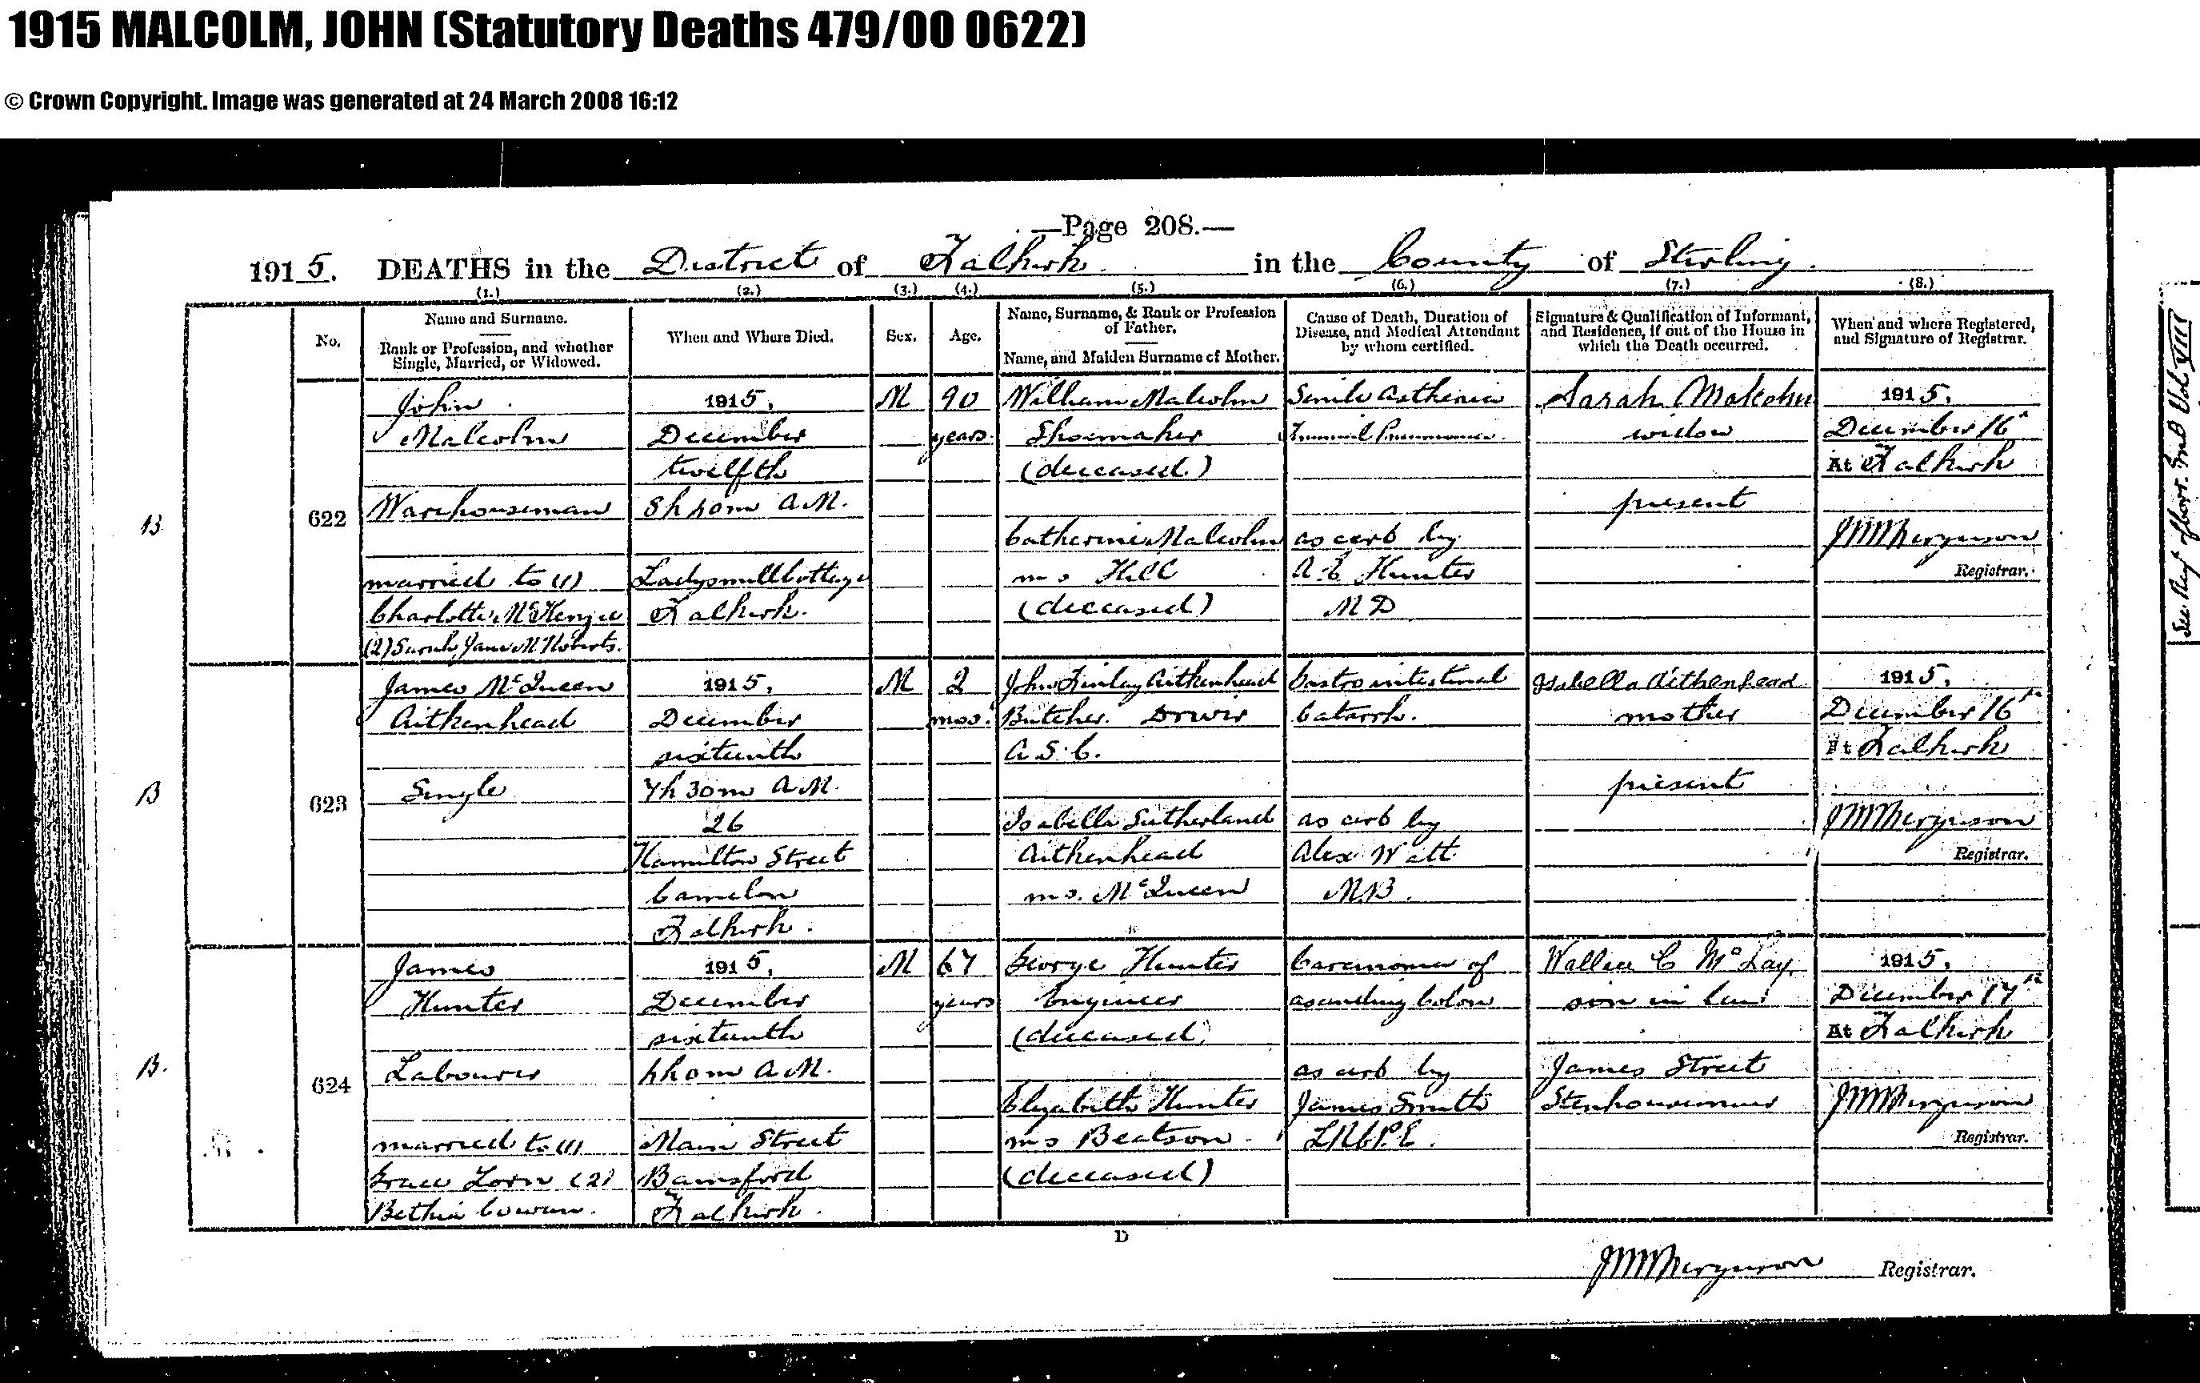 1915 MALCOLM, JOHN (Statutory Deaths 479/00 0622)
© Crown Copyright. Image was generated at 24 March 2008 16:12
—Page 208.—
1915. DEATHS in the District of Falkirk in the County of Stirling
(1.) (2.) (3.) (4.) (5.) (6.) (7.) (8.)
No.
Name and Surname.
Rank or Profession, and whether
Single, Married, or Widowed.
When and Where Died.
Sex.
Age.
Name, Surname, & Rank or Profession
of Father.
Name, and Maiden Surname of Mother.
Cause of Death, Duration of
Disease, and Medical Attendant
by whom certified.
Signature & Qualification of Informant,
and Residence, if out of the House in
which the Death occurred.
When and where Registered,
and Signature of Registrar.
B
622
John
Malcolm
Warehouseman
married to (1)
Charlotte McKenzie
(2) Sarah Jane M Roberts.
1915,
December
twelfth
A.M.
Ladysmill Cottage
Falkirk.
M
90
years.
William Malcolm
Shoemaker
(deceased)
Catherine Malcolm
ms Hill
(deceased)
Senile Asthenia
Pneumonia
as cert by
A C Hunter
MD
Sarah Malcolm
widow
present
1915,
December 16th
At Falkirk
Ferguson
Registrar.
B
623
James McQueen
Aitkenhead
Single
1915,
December
sixteenth
7h 30m A.M.
26
Hamilton Street
Camelon
Falkirk.
M
2
mos.
John Finlay Aitkenhead
Butcher. Driver
A.S.C.
Isabella Sutherland
Aitkenhead
ms. McQueen
Gastro intestinal
Catarrh.
as cert by
Alex Watt
M.B.
Isabella Aitkenhead
mother
present
1915,
December 16th
At Falkirk
Ferguson
Registrar.
B.
624
James
Hunter
Labourer
married to (1)
Grace Lorn (2)
Bethia Cowan.
1915,
December
sixteenth
A.M.
Main Street
Bainsford
Falkirk.
M
67
years
George Hunter
Engineer
(deceased)
Elizabeth Hunter
ms Beatson
(deceased)
Carcinoma of
ascending Colon
as cert by
James Smith
L.R.C.P.E.
Wallace C McLay
son in law
James Street
Stenhousemuir
1915,
December 17th
At Falkirk
Ferguson
Registrar.
D
Ferguson Registrar.
See Vol VIII